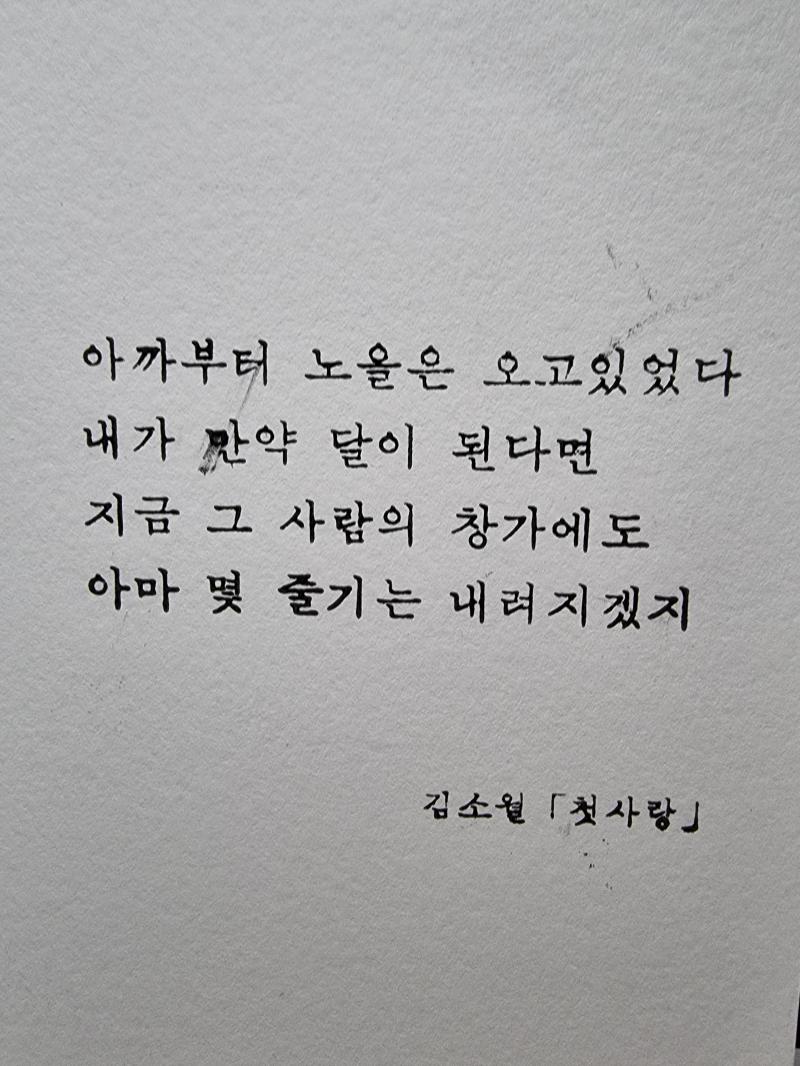 아까부터 노을은 오고있었다
내가 만약 달이 된다면
지금 그 사람의 창가에도
아마 몇 줄기는 내려지겠지
김소월 「첫사랑」